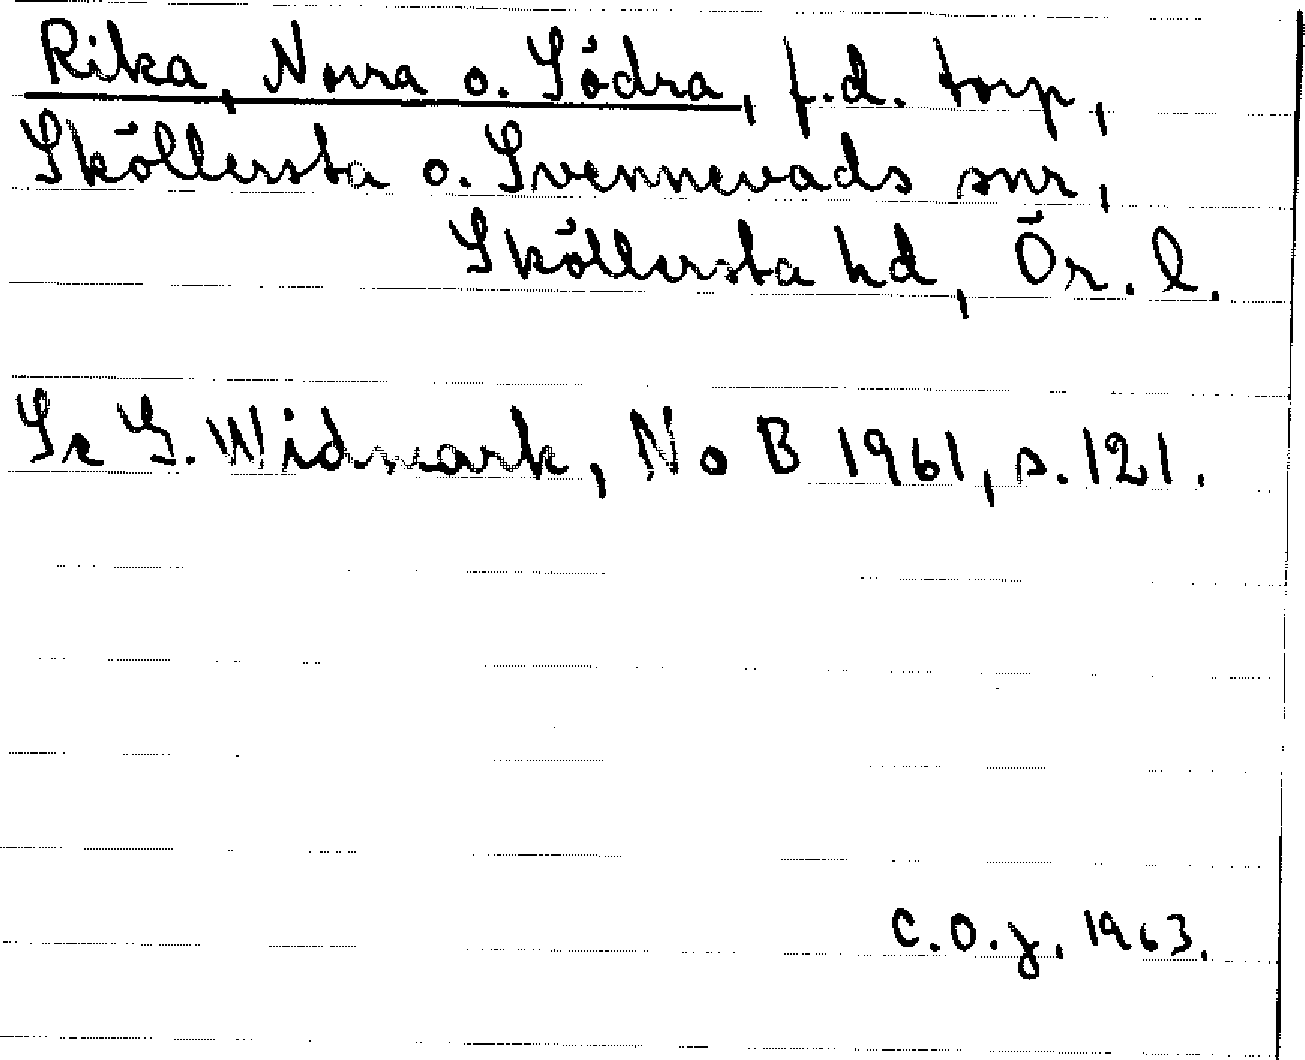 Rika, Norra o. Södra, f.d. torp,
Sköllersta o. Svennevads snr,
Sköllersta hd, Ör. l.
Se G. Widmark, NoB 1961, s. 121.
C.O.J. 1963.